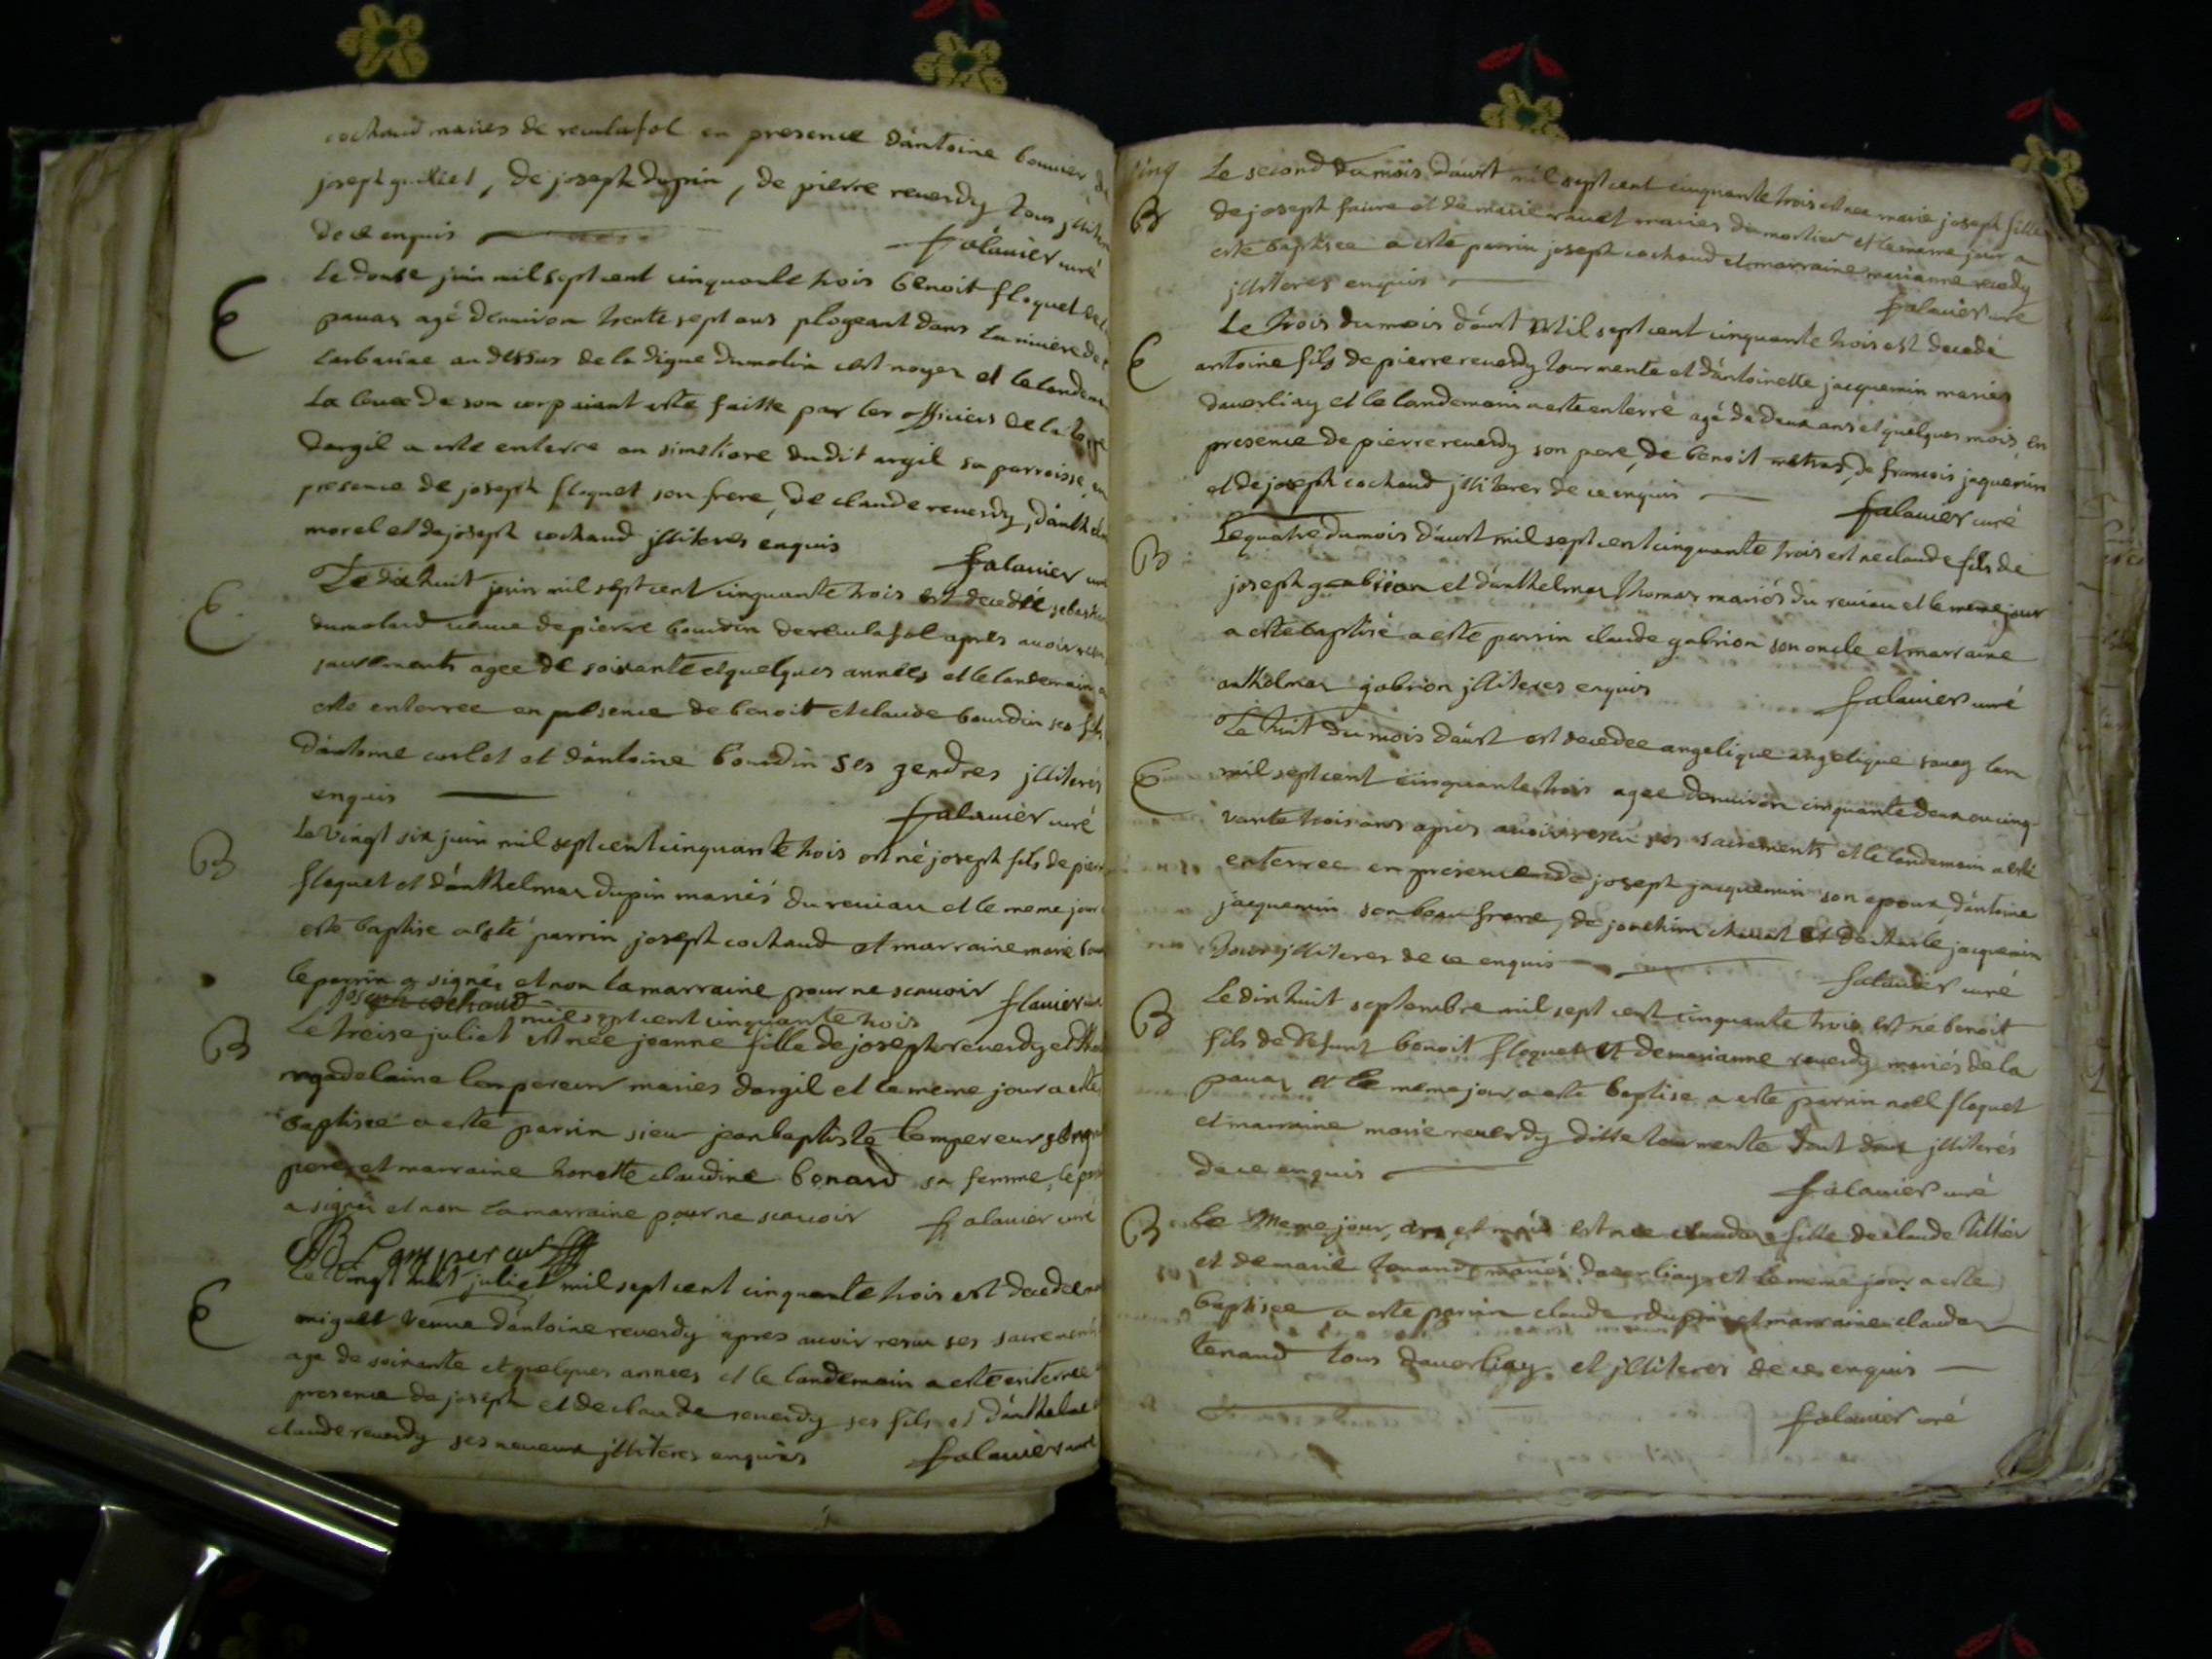 cochaud mariés de reculafol en presence d'antoine bonnier de
joseph guilliet, de joseph dupin, de pierre reuerdy tous jlliteres
de ce enquis
falauier curé
E
le douse juin mil sept cent cinquante trois benoit floquet de la
pauas agé d'enuiron trente sept ans plogeant dans la riuiere de
larbarine au dessus de la digue du molin est noyer et le landemain
la leuee de son corp aiant esté faitte par les officiers de la
dargil a esté enterré au simetiere du dit argil sa parroisse, en
presence de joseph floquet son frere, de claude reuerdy, d'anthelme
morel et de joseph cochaud jlliteres enquis
falauier curé
E
Le dix huit juin mil sept cent cinquante trois est decedée sebastienne
dumolard ueuue de pierre bourdin de reculafol apres auoir recu
sacrements agee de soixante et quelques années et le landemain a
esté enterree en presence de benoit et claude bourdin ses fils
d'antoine carlet et d'antoine bourdin ses gendres jlliterés
enquis
falauier curé
B
Le vingt six juin mil sept cent cinquante trois est né joseph fils de pierre
floquet et d'anthelmaz dupin mariés du reuiau et le meme jour
esté baptise a esté parrin joseph cochaud et marraine marie
le parrin a signé, et non la marraine pour ne scauoir
flauier curé
joseph cochaud
mil sept cent cinquante trois
B
Le treise juliet est née jeanne fille de joseph reuerdy et
magdelaine lempereur mariés dargil et le meme jour a esté
baptisee a esté parrin sieur jean baptiste lempereur
pere et marraine honette claudine bonard sa femme, le parrin
a signé et non la marraine pour ne scauoir
falauier curé
JB Lampereur
E
Le vingt huit juliet mil sept cent cinquante trois est decedee
miguet veuue d'antoine reuerdy apres auoir recu ses sacrements
age de soixante et quelques annees et le landemain a esté enterree
presence de joseph et de claude reuerdy ses fils et d'anthelme
claude reuerdy ses neueux jlliteres enquis
falauier curé
B
Le second du mois d'aust mil sept cent cinquante trois est nee marie joseph fille
de joseph faure et de marie rauet mariés du mortier et le meme jour a
esté baptisee a esté parrin joseph cochaud et marraine marianne reuerdy
jlliteres enquis
falauier curé
E
Le trois du mois d'aust Mil sept cent cinquante trois est decedé
antoine fils de pierre reuerdy tourmente et d'antoinette jacquemin mariés
dauerliay et le landemain a esté enterré agé de deux ans et quelques mois, en
presence de pierre reuerdy son pere, de benoit, de francois jaquemin
et de joseph cochaud jlliteres de ce enquis
falauier curé
B
Le quatre du mois d'aust mil sept cent cinquante trois est né claude fils de
joseph gabrion et d'anthelmaz thomas mariés du reuiau et le meme jour
a esté baptisé a esté parrin claude gabrion son oncle et marraine
anthelmaz gabrion jlliteres enquis
falauier curé
E
Le huit du mois d'aust est decedee angelique angelique sauey lan
mil sept cent cinquante trois agee denuiron cinquante deux ou cinq-
vante trois ans apres auoir resu ses sacrements et le landemain a esté
enterree en presence de joseph jacquemin son epoux, d'antoine
jacquemin son beau frere, de joachim chauet et de charle jacquemin
tous jlliteres de ce enquis
falauier curé
B
Le dix huit septembre mil sept cent cinquante trois est né benoit
fils de defunt benoit floquet et de marianne reuerdy mariés de la
pauaz et le meme jour a esté baptise a esté parrin noël floquet
et marraine marie reuerdy ditte tourmente tout deux jlliterés
de ce enquis
falauier curé
B
Le Meme jour, an, et mois est nee claudaz fille de claude tillier
et de marie tenand mariés dauerliay et le meme jour a esté
baptisee a esté parrin claude dupin et marraine claudaz
tenand tous dauerliay, et jlliteres de ce enquis
falauier curé